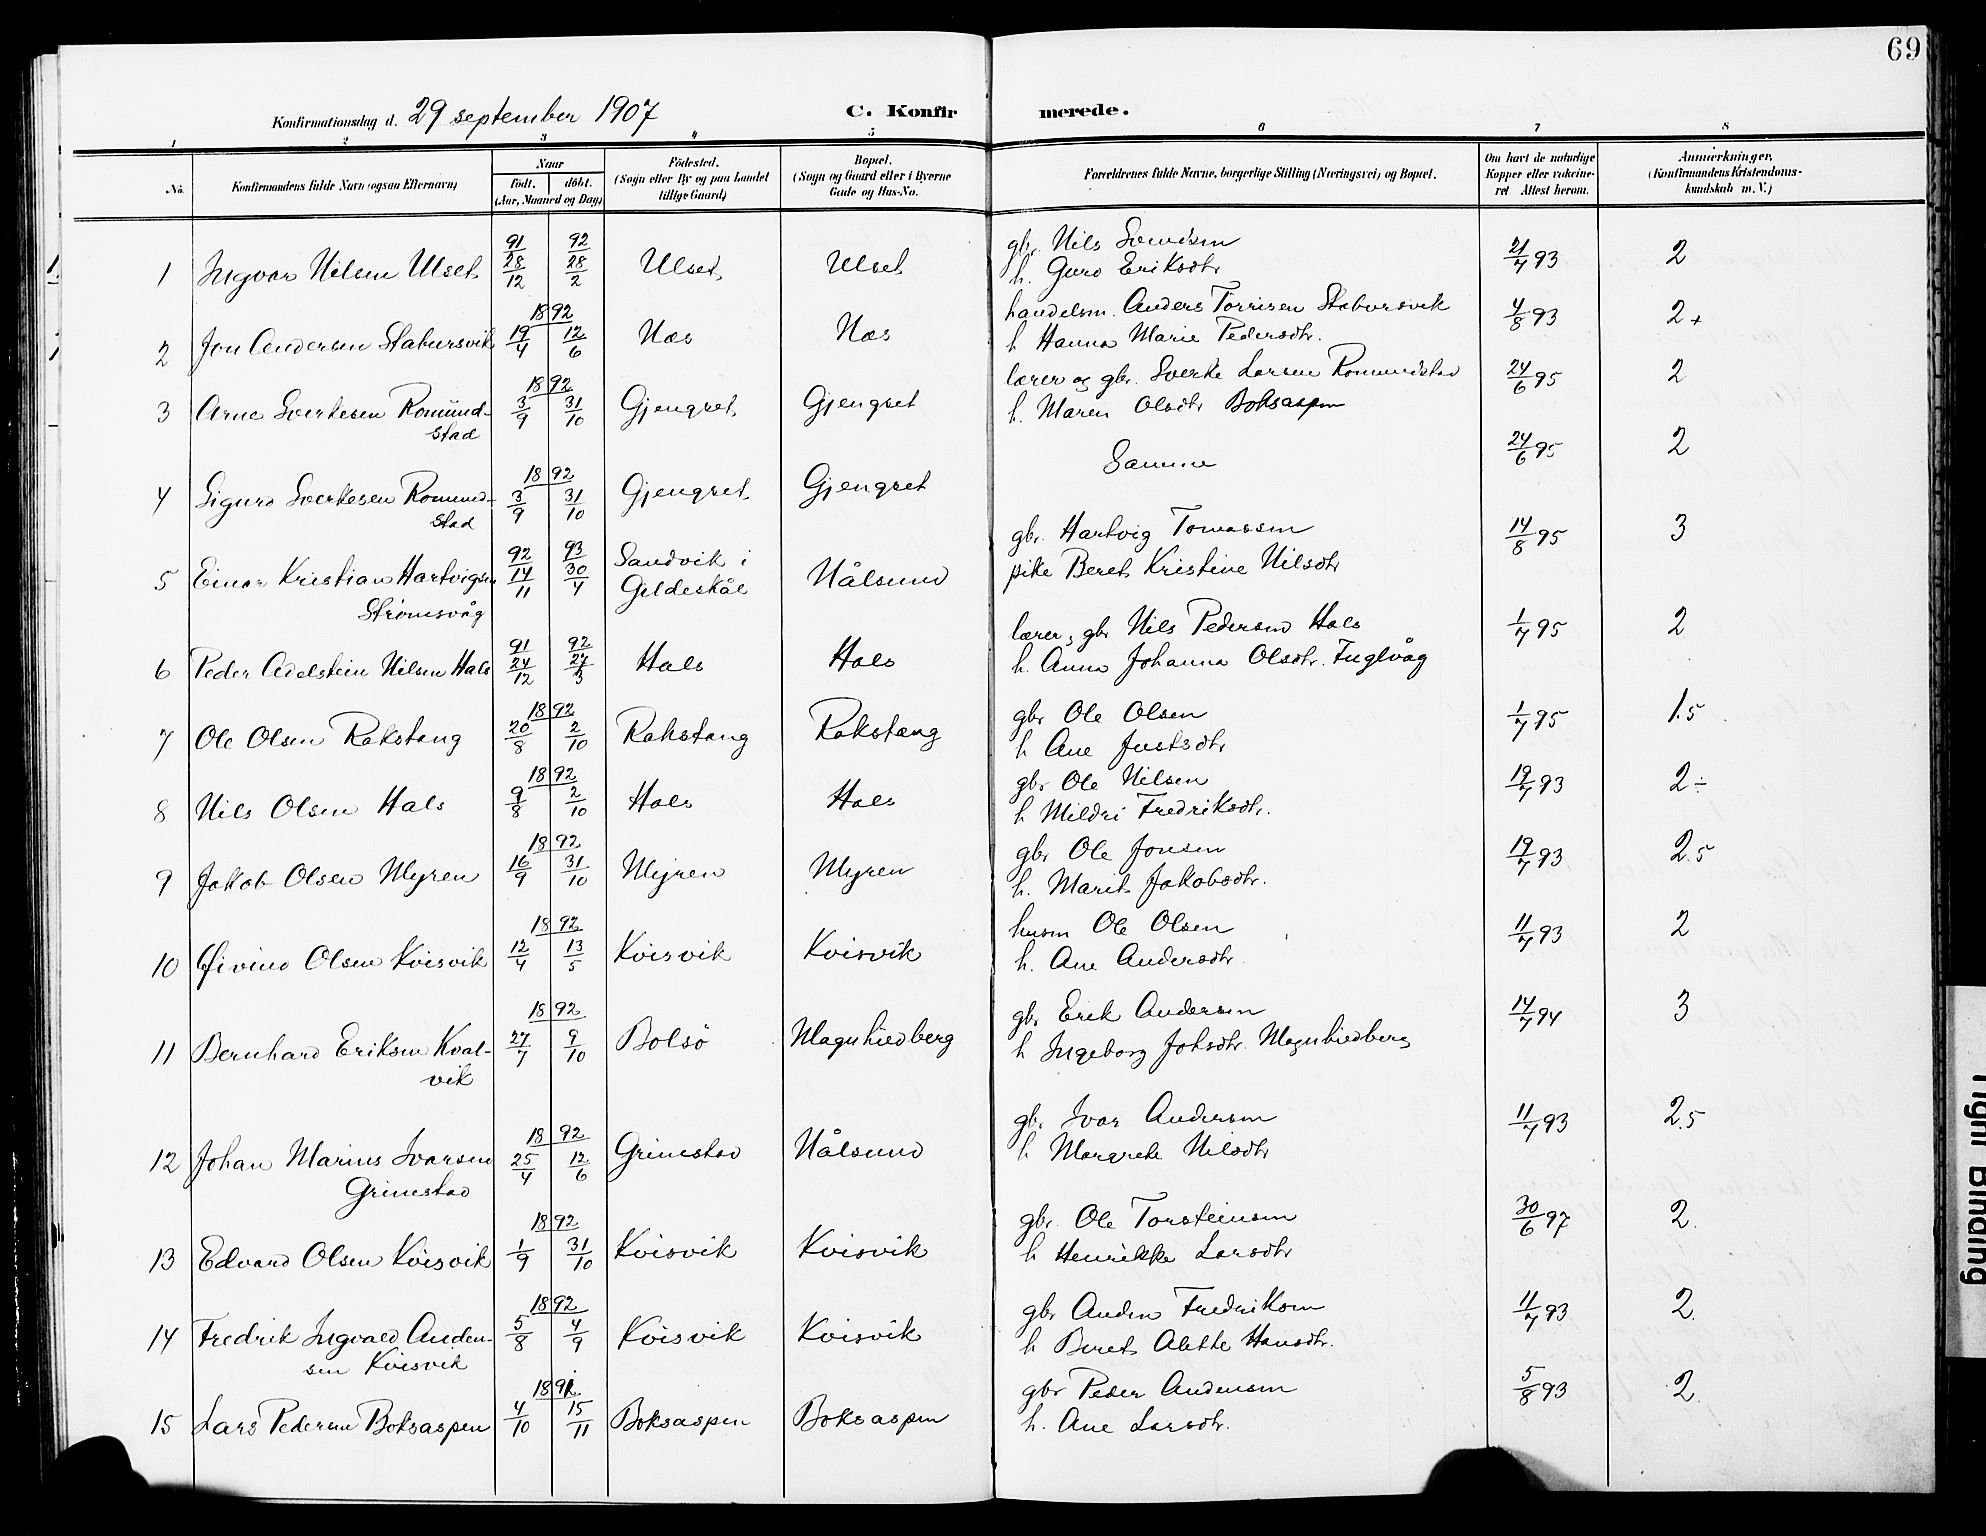 69
Konfirmationsdag d. 29 september 1907
C. Konfirmerede.
1 2 3 4 5 6 7 8
No.
Konfirmandens fulde Navn (ogsaa Efternavn)
Naar
født. døbt.
(Aar, Maaned og Dag)
Fødested.
(Sogn eller By og paa Landet
tillige Gaard)
Bopæl.
(Sogn og Gaard eller i Byerne
Gade og Hus-No.
Forældrenes fulde Navne, borgerlige Stilling (Næringsvei) og Bopæl.
Om havt de naturlige
Kopper eller vakcine-
ret Attest herom.
Anmærkninger.
(Konfirmandens Kristendoms-
kundskab m. V.)
1 Ingvar Nilsen Ulset 91 28/12 92 28/2 Ulset Ulset gbr. Nils Svendsen 21/7 93 2
h. Guro Eriksdtr
2 Jon Andersen Stabursvik 1892 19/4 12/6 Næs Næs handelsm. Anders Torrisen Stabursvik 4/8 93 2+
h Hanna Marie Pedersdtr.
3 Arne Sverkesen Romund- 1892 3/9 31/10 Gjengset Gjengset lærer og gbr. Sverke Larsen Romundstad 24/6 95 2
stad h. Maren Olsdtr Boksaspen
4 Sigurd Sverkesen Romund- 1892 3/9 31/10 Gjengset Gjengset Samme 24/6 95 2
stad
5 Einar Kristian Hartvigsen 92 14/11 93 30/4 Sandvik i Nålsund gbr. Hartvig Tomassen 14/8 95 3
Strømsvåg Gildeskål pike Beret Kristine Nilsdtr
6 Peder Adelstein Nilsen Hals 91 24/12 92 27/3 Hals Hals lærer, gbr Nils Pedersen Hals 1/7 95 2
h. Anna Johanna Olsdtr. Fuglvåg
7 Ole Olsen Rakstang 1892 20/8 2/10 Rakstang Rakstang gbr Ole Olsen 1/7 95 1.5
h Ane Justsdtr
8 Nils Olsen Hals 1892 9/8 2/10 Hals Hals gbr Ole Nilsen 19/7 93 2÷
h Mildri Fredriksdtr.
9 Jakob Olsen Myren 1892 16/9 31/10 Myren Myren gbr Ole Jonsen 19/7 93 2.5
h. Marit Jakobsdtr.
10 Øivind Olsen Kvisvik 1892 12/4 13/5 Kvisvik Kvisvik husm Ole Olsen 11/7 93 2
h. Ane Andersdtr.
11 Bernhard Eriksen Kval- 1892 27/7 9/10 Bolsö Magnhiedberg gbr Erik Andersen 14/7 94 3
vik h Ingeborg Johsdtr. Magnhiedberg
12 Johan Marius Ivarsen 1892 25/4 12/6 Grimstad Nålsund gbr. Ivar Andersen 11/7 93 2.5
Grimstad h Margrete Nilsdtr
13 Edvard Olsen Kvisvik 1892 1/9 31/10 Kvisvik Kvisvik gbr. Ole Torsteinsen 30/6 97 2.
h Henrikke Larsdtr
14 Fredrik Ingvald Anden- 1892 5/8 4/9 Kvisvik Kvisvik gbr Anden Fredriksen 11/7 93 2.
sen Kvisvik h Beret Alette Hansdtr.
15 Lars Pedersen Boksaspen 1891 4/10 15/11 Boksaspen Boksaspen gbr Peder Andersen 5/8 93 2.
h. Ane Larsdtr.
Tight Binding